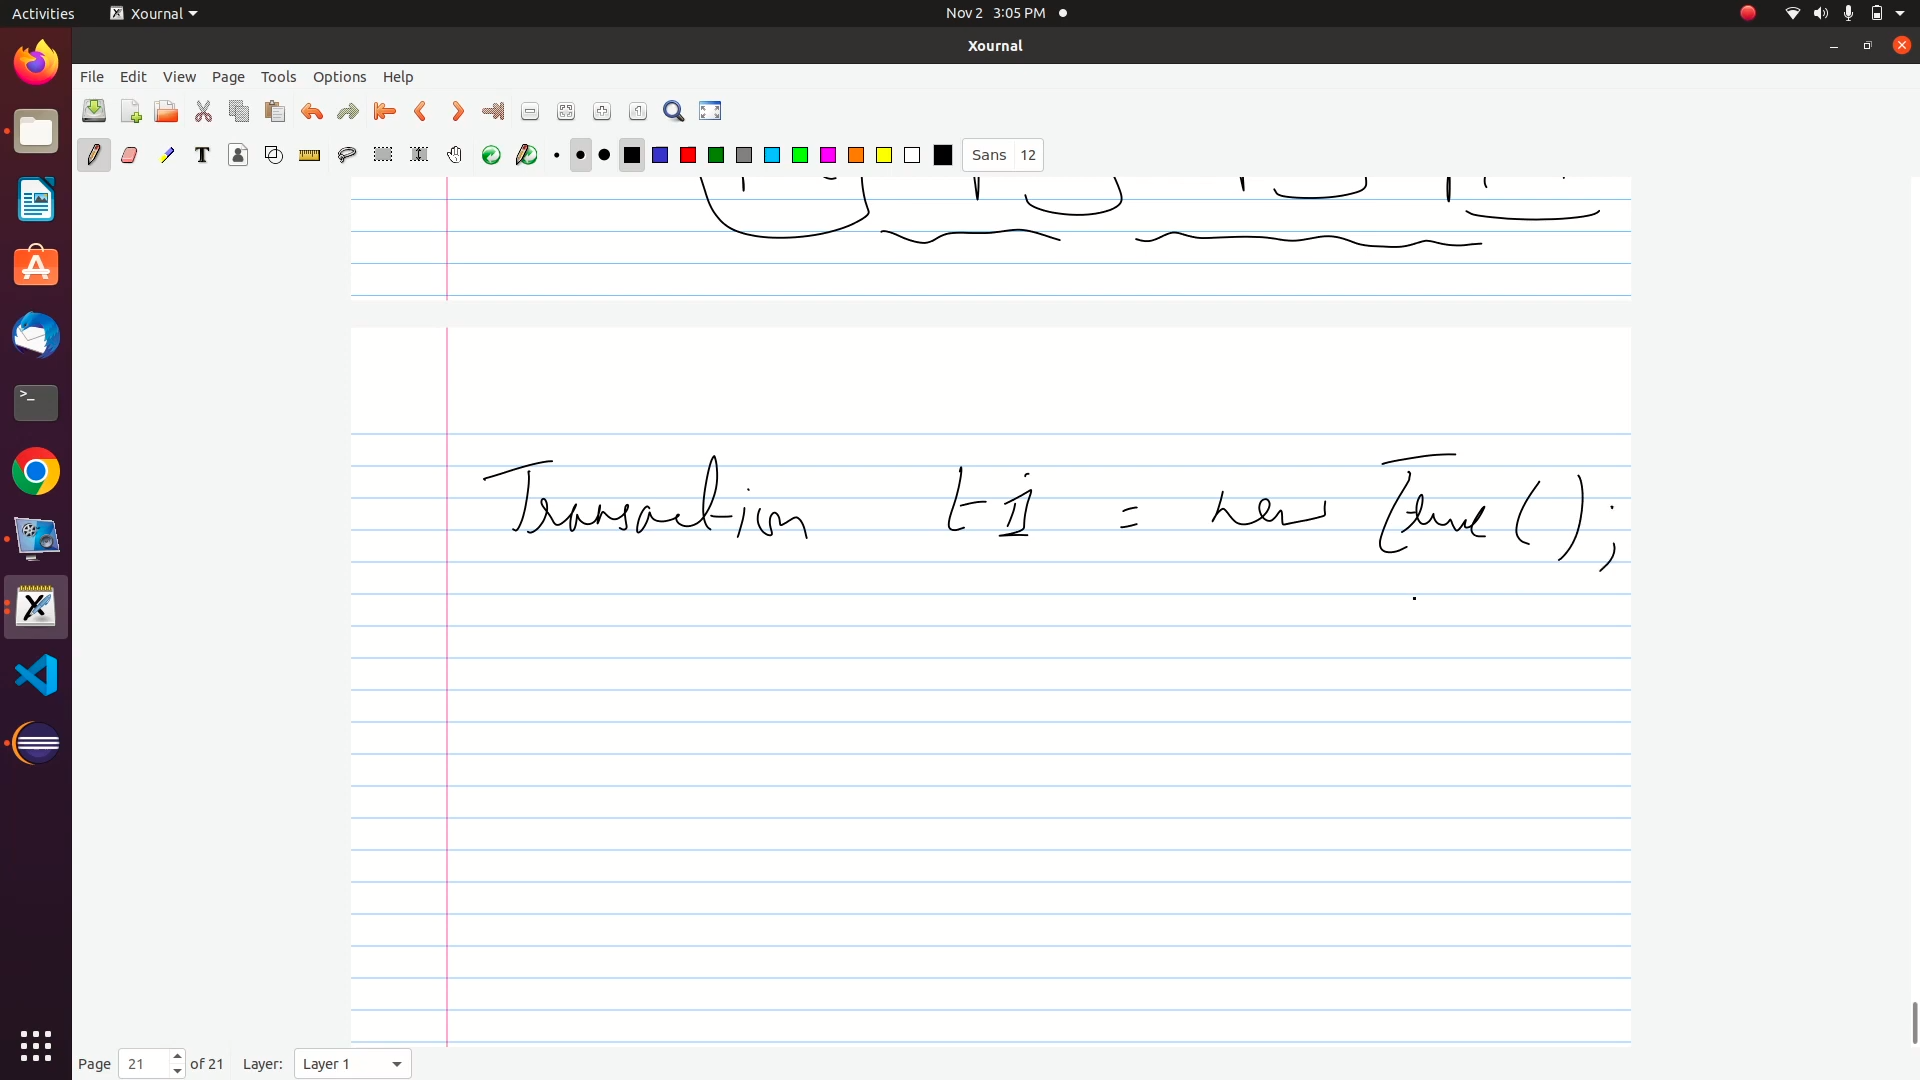 Activities Xournal Nov 2 3:05 PM
Xournal
File Edit View Page Tools Options Help
T Sans 12
Transaction = new ();
Page 21 of 21 Layer: Layer 1